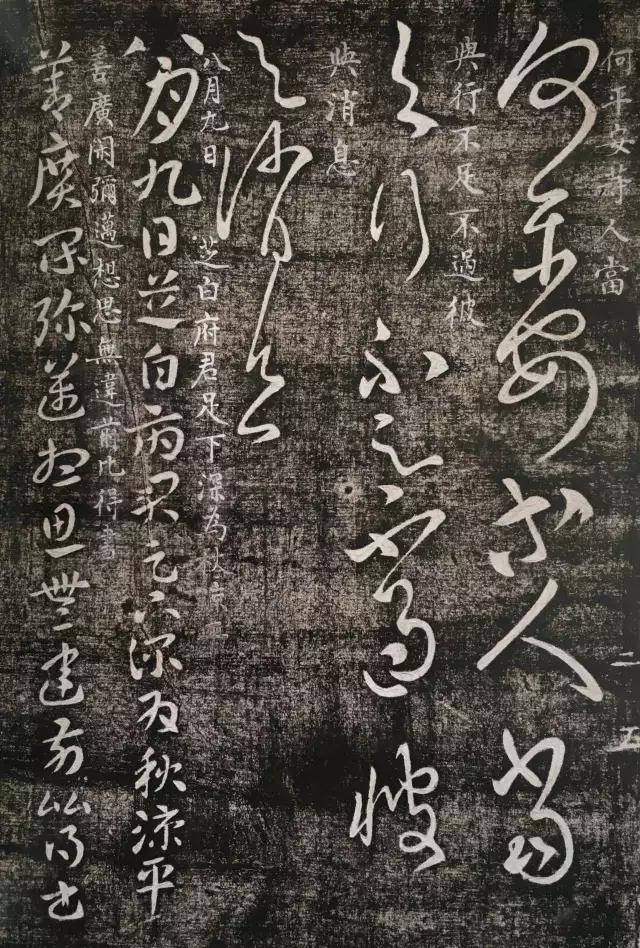 何平安人當
二五
何平安人當
與行不足不過彼
與行不足不過彼
與消息
與消息
八月九日 芝白府君足下深為秋涼平
八月九日芝白府君足下深為秋涼平
善廣閑彌邁想思無違前比得書
善廣閑彌邁想思無違前比得書